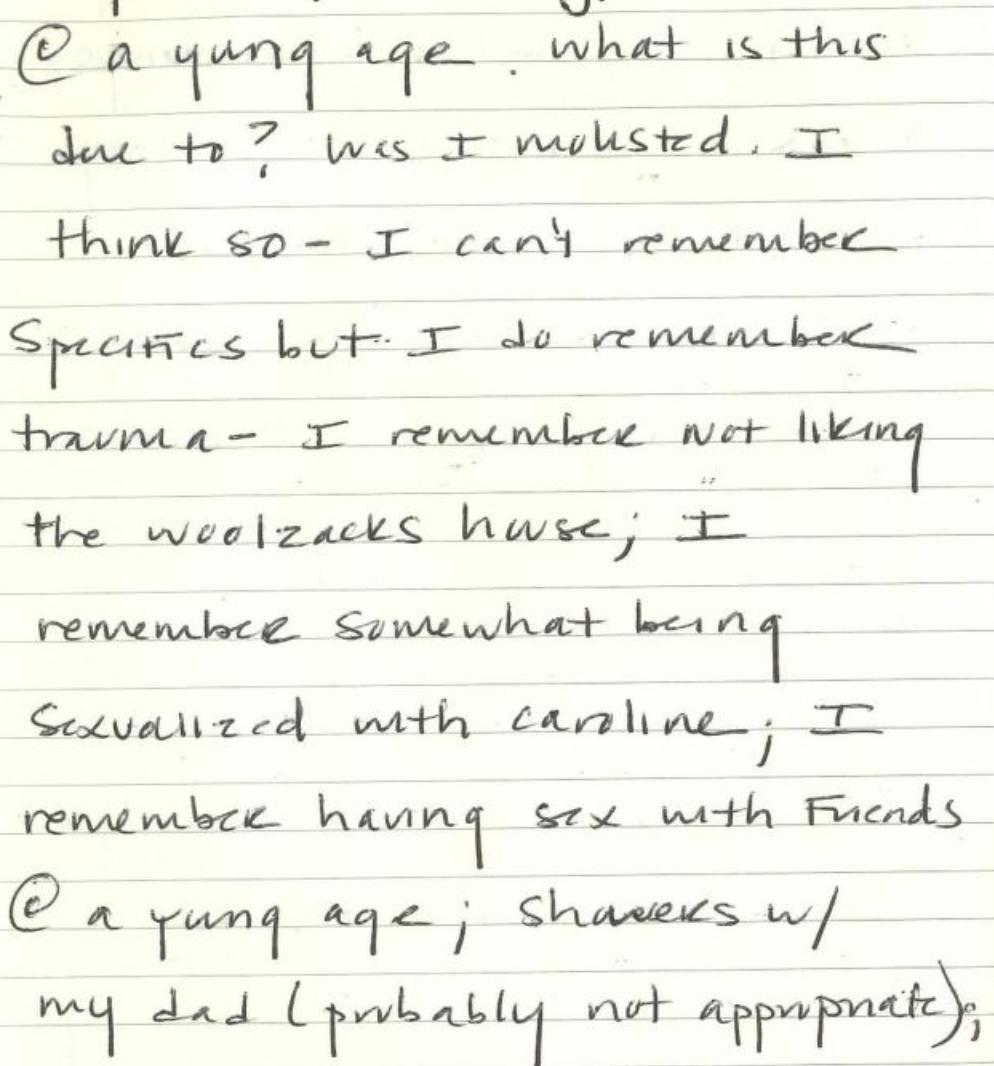 @ a yung age. what is this
due to? was I molested. I
think so - I can't remember
Specifics but I do remember
trauma - I remember not liking
the woolzacks house; I
remember somewhat being
sexualized with caroline; I
remember having sex with Friends
@ a yung age; showers w/
my dad (probably not appropriate);